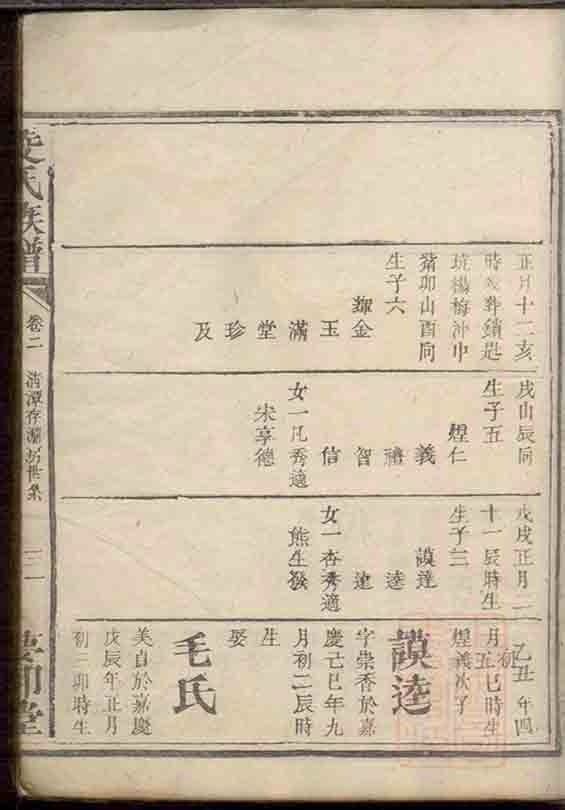 正月十二亥
時
琉楊梅沖巾
豬卯山酉向
生子六
輝金
玉
滿
堂
珍
及
戌山辰向
生子五
煌仁
義
禮
智
信
女一凡秀適
宋享德
戊戌正月二
十一辰時生
生子三
謨達
逵
建
女一杏秀適
熊生發
乙丑年四
月初五巳時生
煌義次子
謨逵
字崇香於嘉
慶己巳年九
月初二辰時
生
娶
毛氏
美自於嘉慶
戊辰年正月
初三卯時生
氏族譜
卷二
清潭存
世系
堂